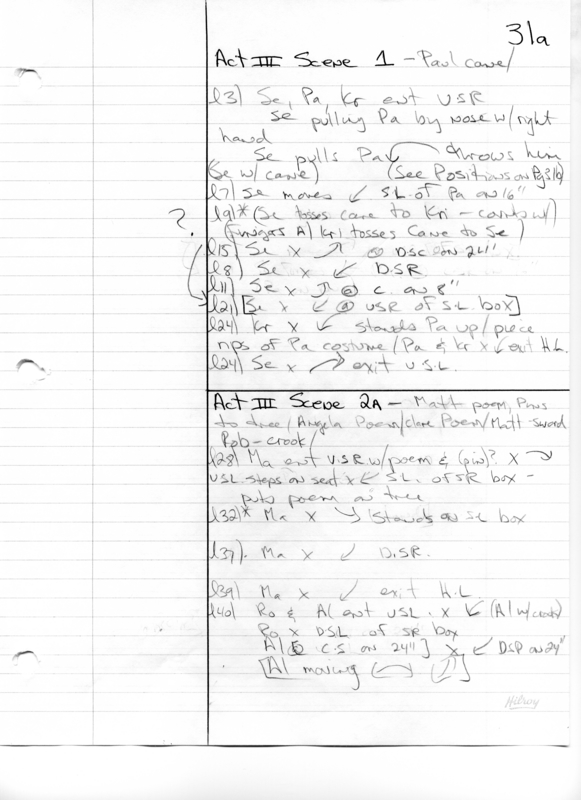 31a
Act III Scene 1 - Paul cane/
l3) Se, Pa, Kr ent USR
Se pulling Pa by nose w/ right
hand
Se pulls Pa ↙ throws him
(Se w/ cane) (See Positions on Pg 31b)
l7) Se moves ↙ S.L. of Pa on 16"
?
l9)* (Se tosses cane to Kri - w/
fingers A) Kri tosses Cane to Se)
l15) Se x ↗ @ DSC on 24"
l8) Se x ↙ D.SR
l11) Se x ↗ @ C. on 8"
l21) [Se x ↙ @ USR of S.L. box]
l24) Kr x ↙ stands Pa up/piece
rips of Pa costume/Pa & Kr x ↙ exit H.L.
l24) Se x ↗ exit U.S.L.
Act III Scene 2A - Matt poem, Pins
to tree/Angela Poem/Clare Poem/Matt-sword
Rob-crook/
l28) Ma ent U.S.R. w/ poem & (pin)? x
USL steps on x ↙ S.L. of SR box -
puts poem on tree
l32)* Ma x ↘ stands on SL box
l37). Ma x ↙ D.SR.
l39) Ma x ↙ exit H.L
l40) Ro & Al ent USL. x ↙ (Al w/ crook)
Ro x DSL of SR box
Al [@ C.S on 24"] x ↙ DSR on 24"
[Al moving]
Hilroy